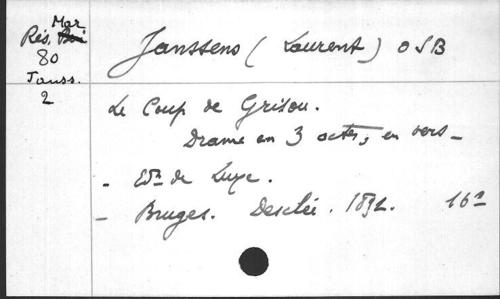 Mar
Rés. Boi
80
Janss.
2
Janssens (Laurent) OSB
Le Coup de Grisou.
Drame en 3 actes, en vers_
- Edn de Luxe.
- Bruges. Desclée. 1892. 16º